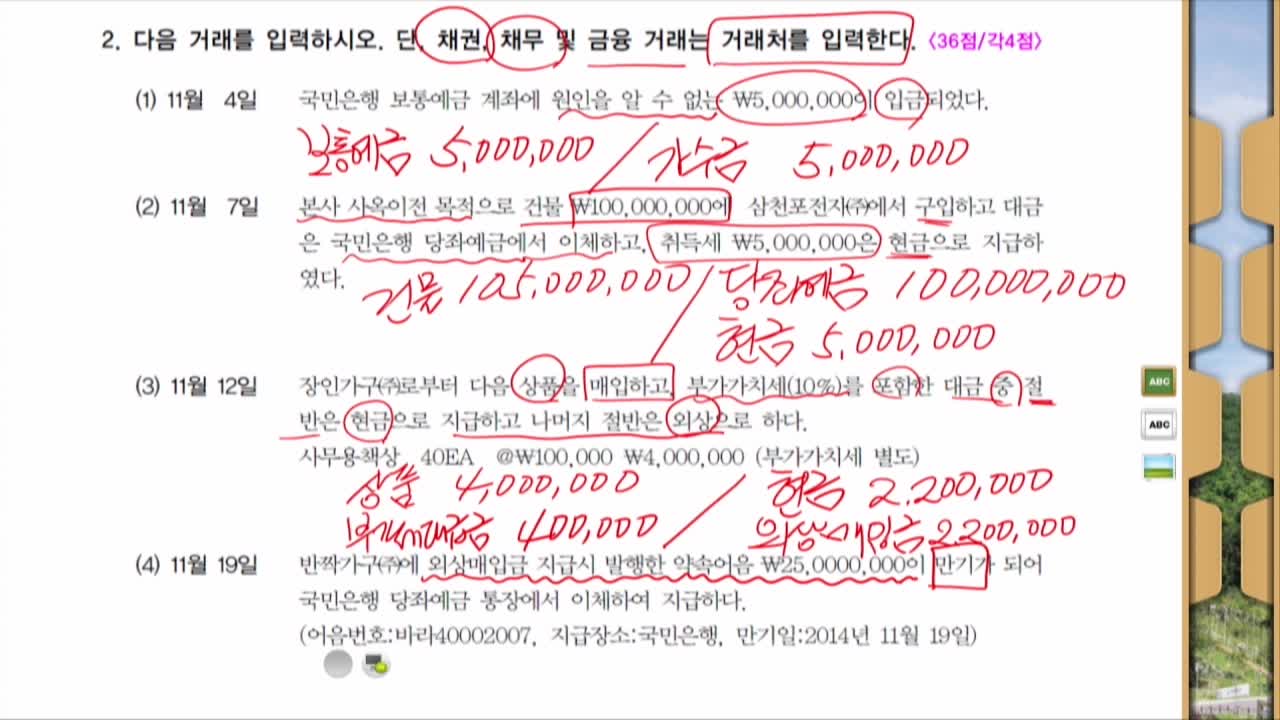 2. 다음 거래를 입력하시오. 단, 채권, 채무 및 금융 거래는 거래처를 입력한다. 〈36점/각4점〉
(1) 11월 4일 국민은행 보통예금 계좌에 원인을 알 수 없는 ₩5,000,000이 입금되었다.
보통예금 5,000,000 / 가수금 5,000,000
(2) 11월 7일 본사 사옥이전 목적으로 건물 ₩100,000,000에 삼천포전자㈜에서 구입하고 대금
은 국민은행 당좌예금에서 이체하고, 취득세 ₩5,000,000은 현금으로 지급하
였다.
건물 105,000,000 / 당좌예금 100,000,000
현금 5,000,000
(3) 11월 12일 장인가구㈜로부터 다음 상품을 매입하고, 부가가치세(10%)를 포함한 대금 중 절
반은 현금으로 지급하고 나머지 절반은 외상으로 하다.
사무용책상 40EA @₩100,000 ₩4,000,000 (부가가치세 별도)
상품 4,000,000 / 현금 2.200,000
부가세대급금 400,000 외상매입금 2.200,000
(4) 11월 19일 반짝가구㈜에 외상매입금 지급시 발행한 약속어음 ₩25,0000,000이 만기가 되어
국민은행 당좌예금 통장에서 이체하여 지급하다.
(어음번호:바라40002007, 지급장소:국민은행, 만기일:2014년 11월 19일)
ABC
ABC